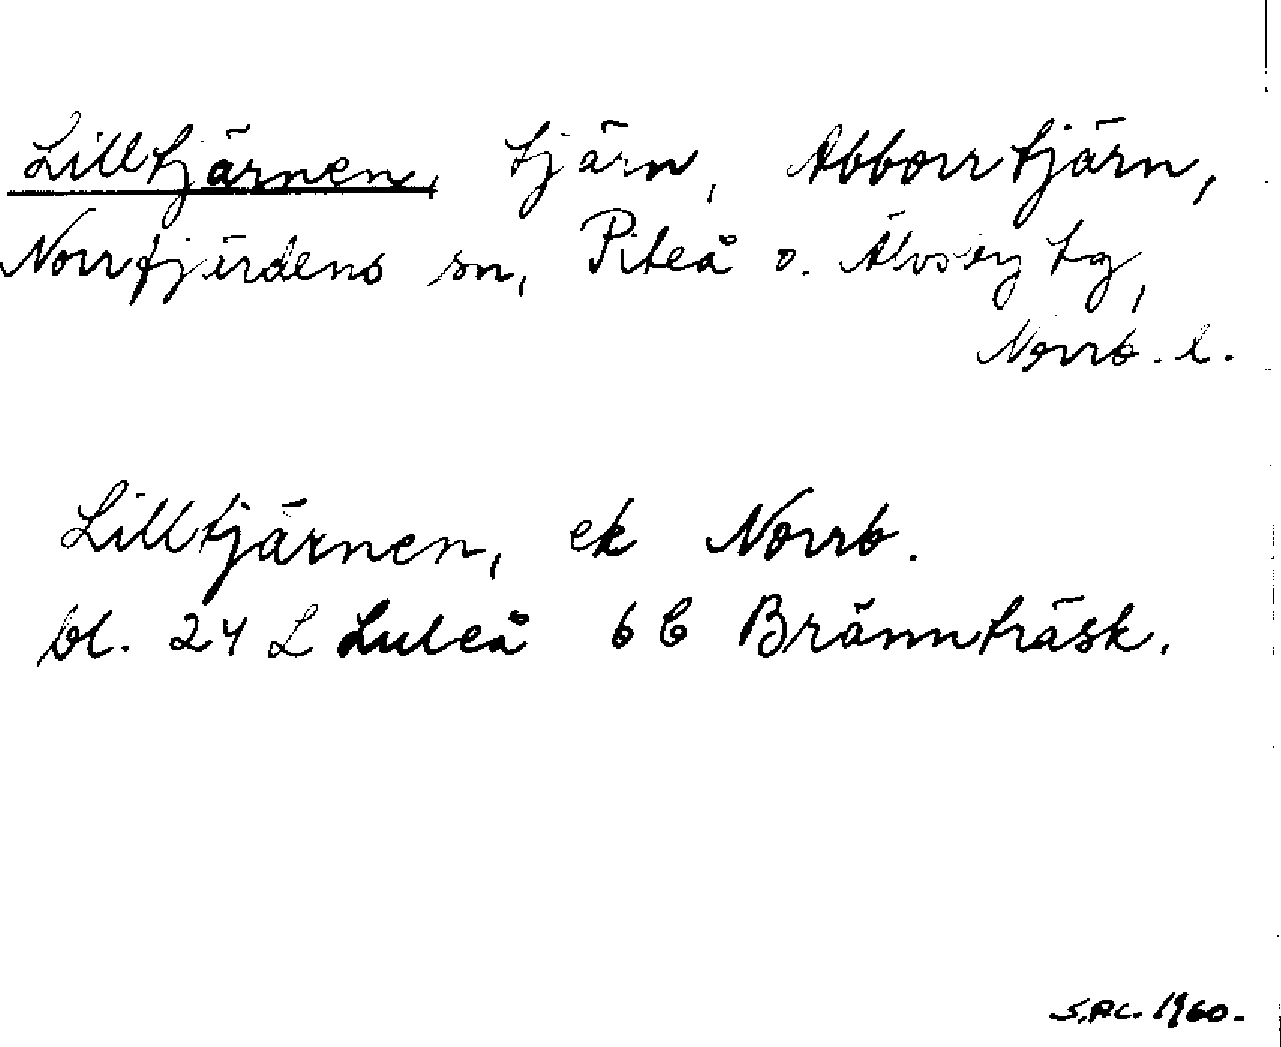 Lilltjärnen, tjärn, Abborrtjärn,
Norrfjärdens sn, Piteå o. Älvsby tg,
Norrb. l.
Lilltjärnen, ek Norrb.
bl. 24 L Luleå 6 C Brännträsk.
1960.